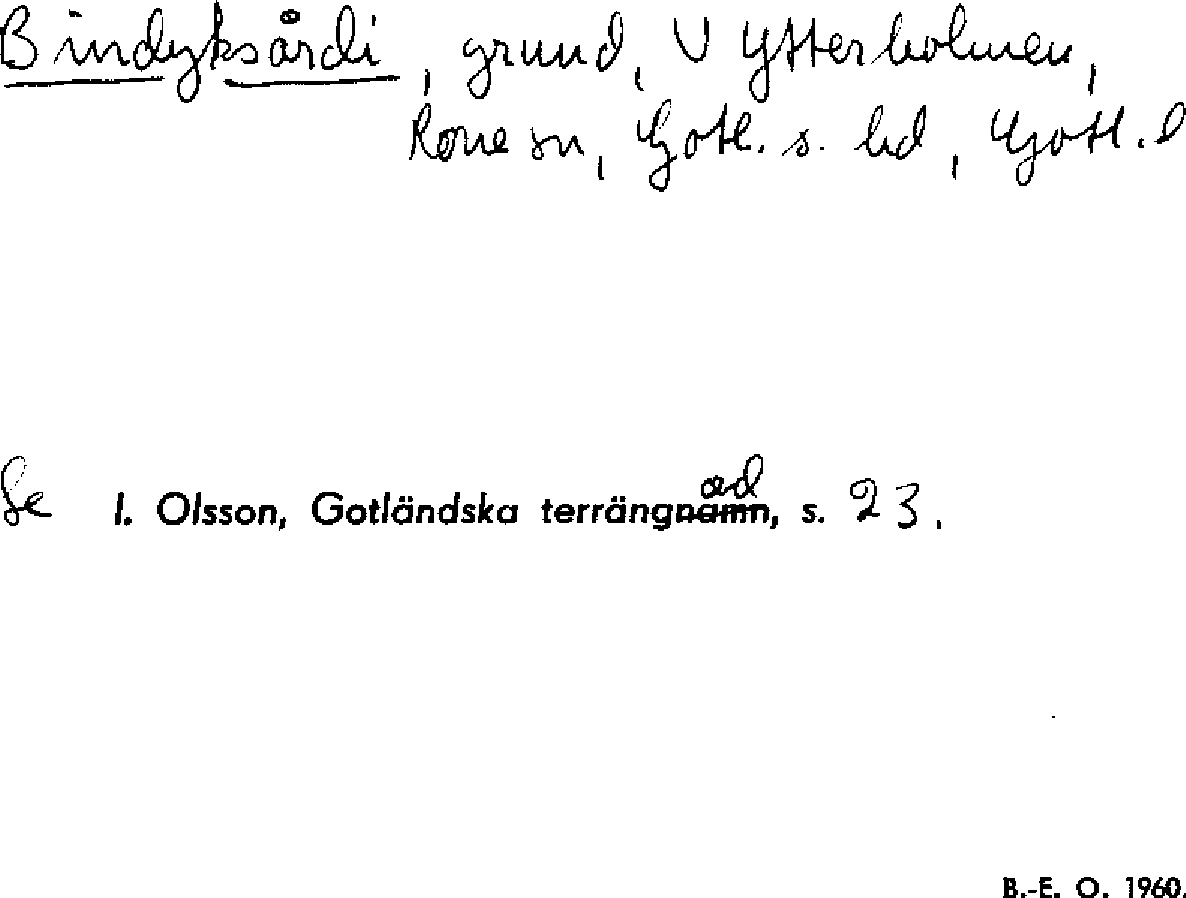 Bindyksårdi, grund, V Ytterholmen,
Rone sn, Gotl. s. hd, Gotl. l
Se I. Olsson, Gotländska terrängord, s. 23.
B.-E. O. 1960.